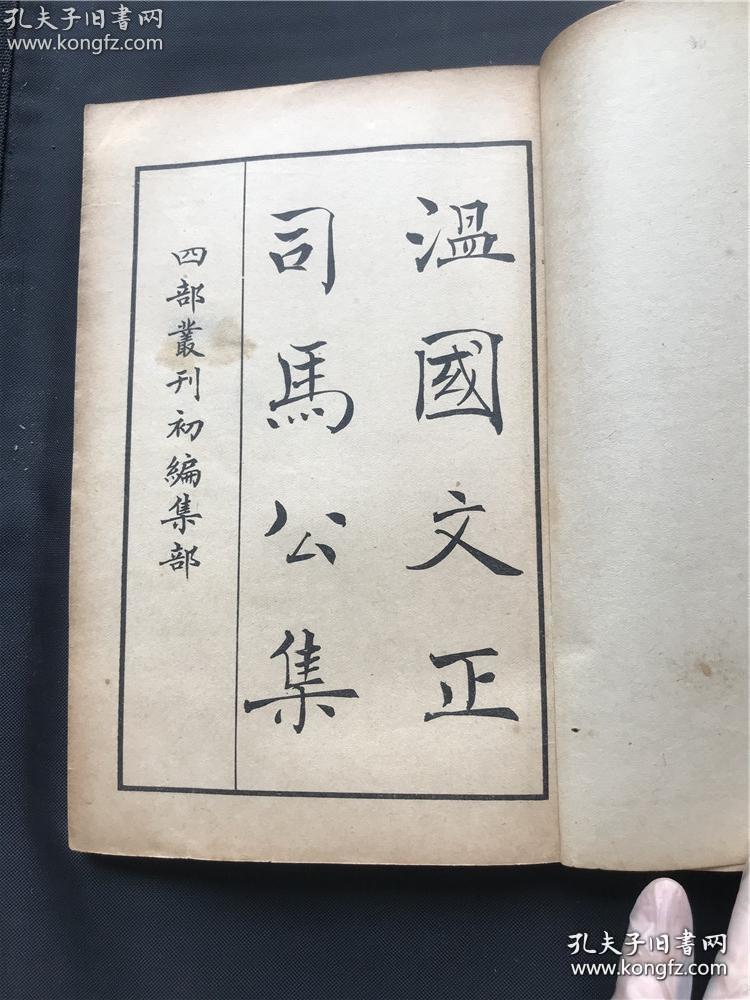 孔夫子旧书网
www.kongfz.com
溫國文正
司馬公集
四部叢刊初編集部
孔夫子旧书网
www.kongfz.com